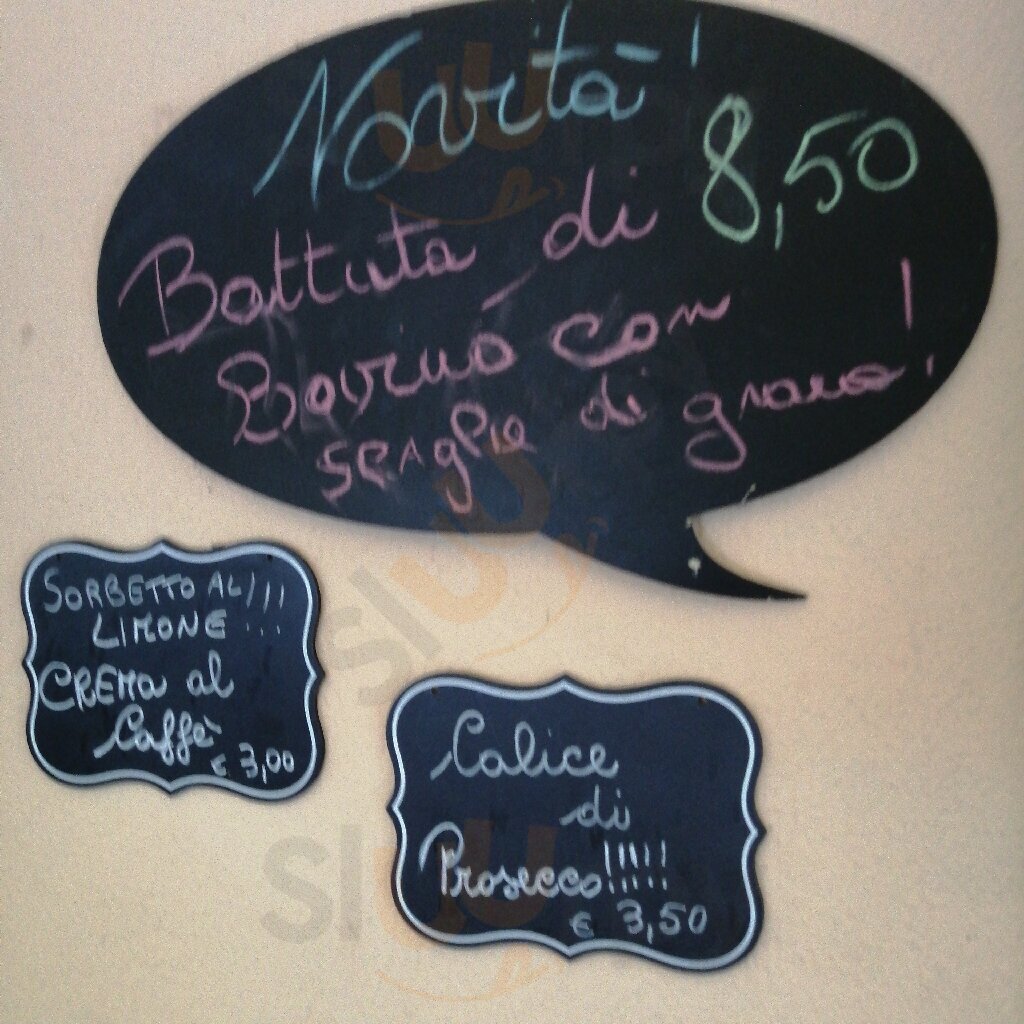 Novità!
8,50
Battuta di
Bovino con
scaglie di grana!
SORBETTO AL!!!
LIMONE...
CREMA al
Caffè
€ 3,00
Calice
di
Prosecco!!!!!
€ 3,50
SLUUrpy
SLUUrpy